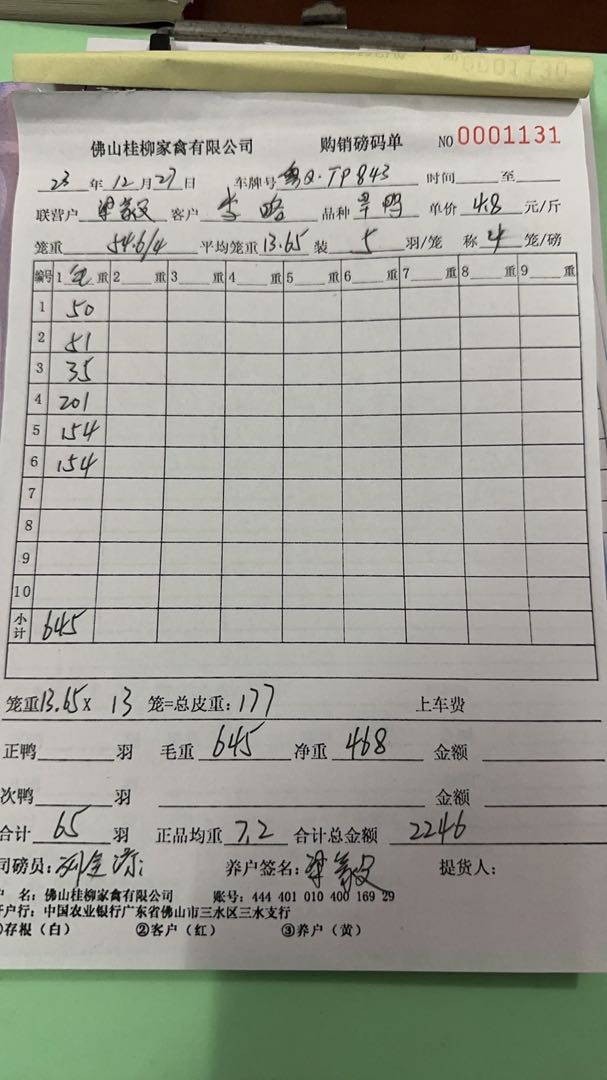 佛山桂柳家禽有限公司 购销磅码单 NO 0001131
23 年 12 月 27 日 车牌号 粤Q·TP843 时间 至
联营户 客户 李 品种 旱鸭 单价 4.8 元/斤
笼重 54.6/4 平均笼重 13.65 装 5 羽/笼 称 4 笼/磅
编号 1 毛 重 2 重 3 重 4 重 5 重 6 重 7 重 8 重 9 重
1 50
2 51
3 35
4 201
5 154
6 154
7
8
9
10
小计 645
笼重 13.65 x 13 笼=总皮重: 177 上车费
正鸭 羽 毛重 645 净重 468 金额
次鸭 羽 金额
合计 65 羽 正品均重 7.2 合计总金额 2246
司磅员: 养户签名: 提货人:
户 名: 佛山桂柳家禽有限公司 账号: 444 401 010 400 169 29
开户行: 中国农业银行广东省佛山市三水区三水支行
①存根(白) ②客户(红) ③养户(黄)